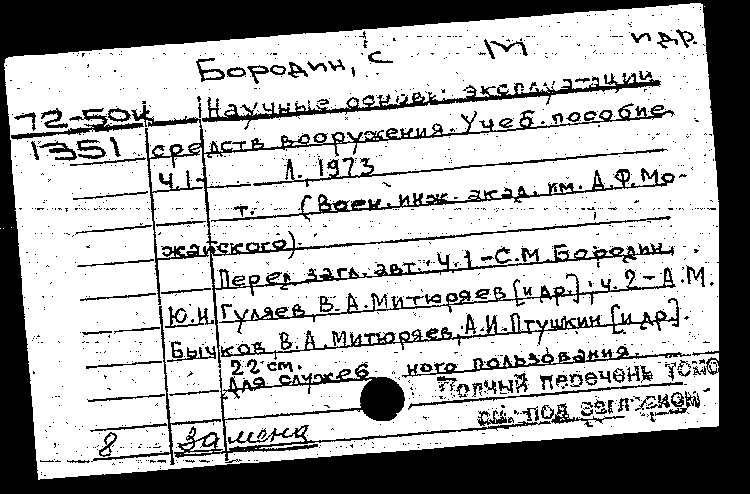 Бородин, С М и др
72-50к Научные основы эксплуатации
1351 средств вооружения. Учеб. пособие
Ч.1- Л., 1973
т. (Воен. инж. акад. им. А.Ф.Мо-
жайского).
Перед загл. авт.: Ч.1-С.М.Бородин,
Ю.Н.Гуляев, В.А.Митюряев [и др.]; ч.2-А.М.
Бычков, В.А.Митюряев, А.И.Птушкин [и др].
22 см.
Для служеб ного пользования.
Полный перечень томо
см. под заглавием
8 замена